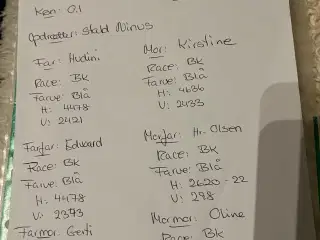 Køn: 0.1
Opdrætter: stald Ninus
Far: Hudini
Race: Bk
Farve: Blå
H: 4478
V: 2421
Mor: Kirstine
Race: Bk
Farve: Blå
H: 4636
V: 2433
Farfar: Edward
Race: Bk
Farve: Blå
H: 4478
V: 2373
Morfar: Hr. Olsen
Race: Bk
Farve: Blå
H: 2620-22
V: 298
Farmor: Gerti
Mormor: Oline
Race: Bk